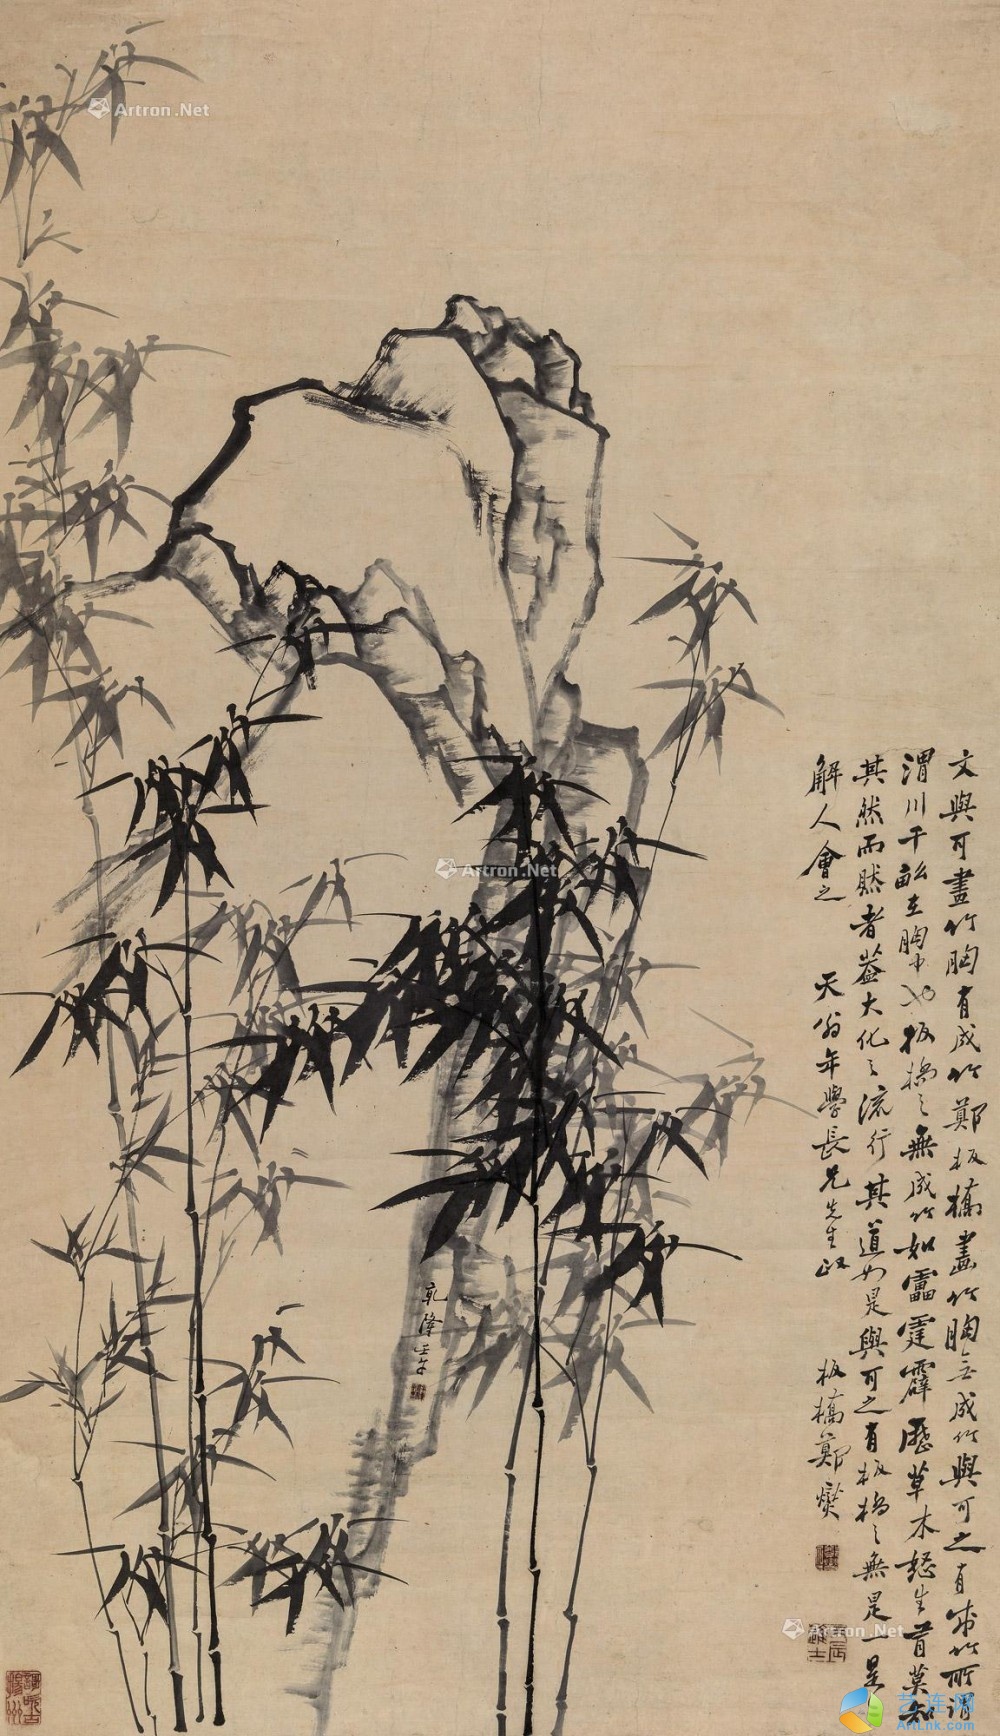 文與可畫竹胸有成竹鄭板橋畫竹胸無成竹與可之有成竹所謂
渭川千畝在胸中也板橋之無成竹如雷霆霹靂草木怒生有莫知
其然而然者蓋大化之流行其道如是與可之有板橋之無是一是
解人會之
天翁年學長兄先生政
板橋鄭燮
乾隆壬午
丙辰進士
Artron.Net
Artron.Net
Artron.Net
艺连网
ArtLnk.com